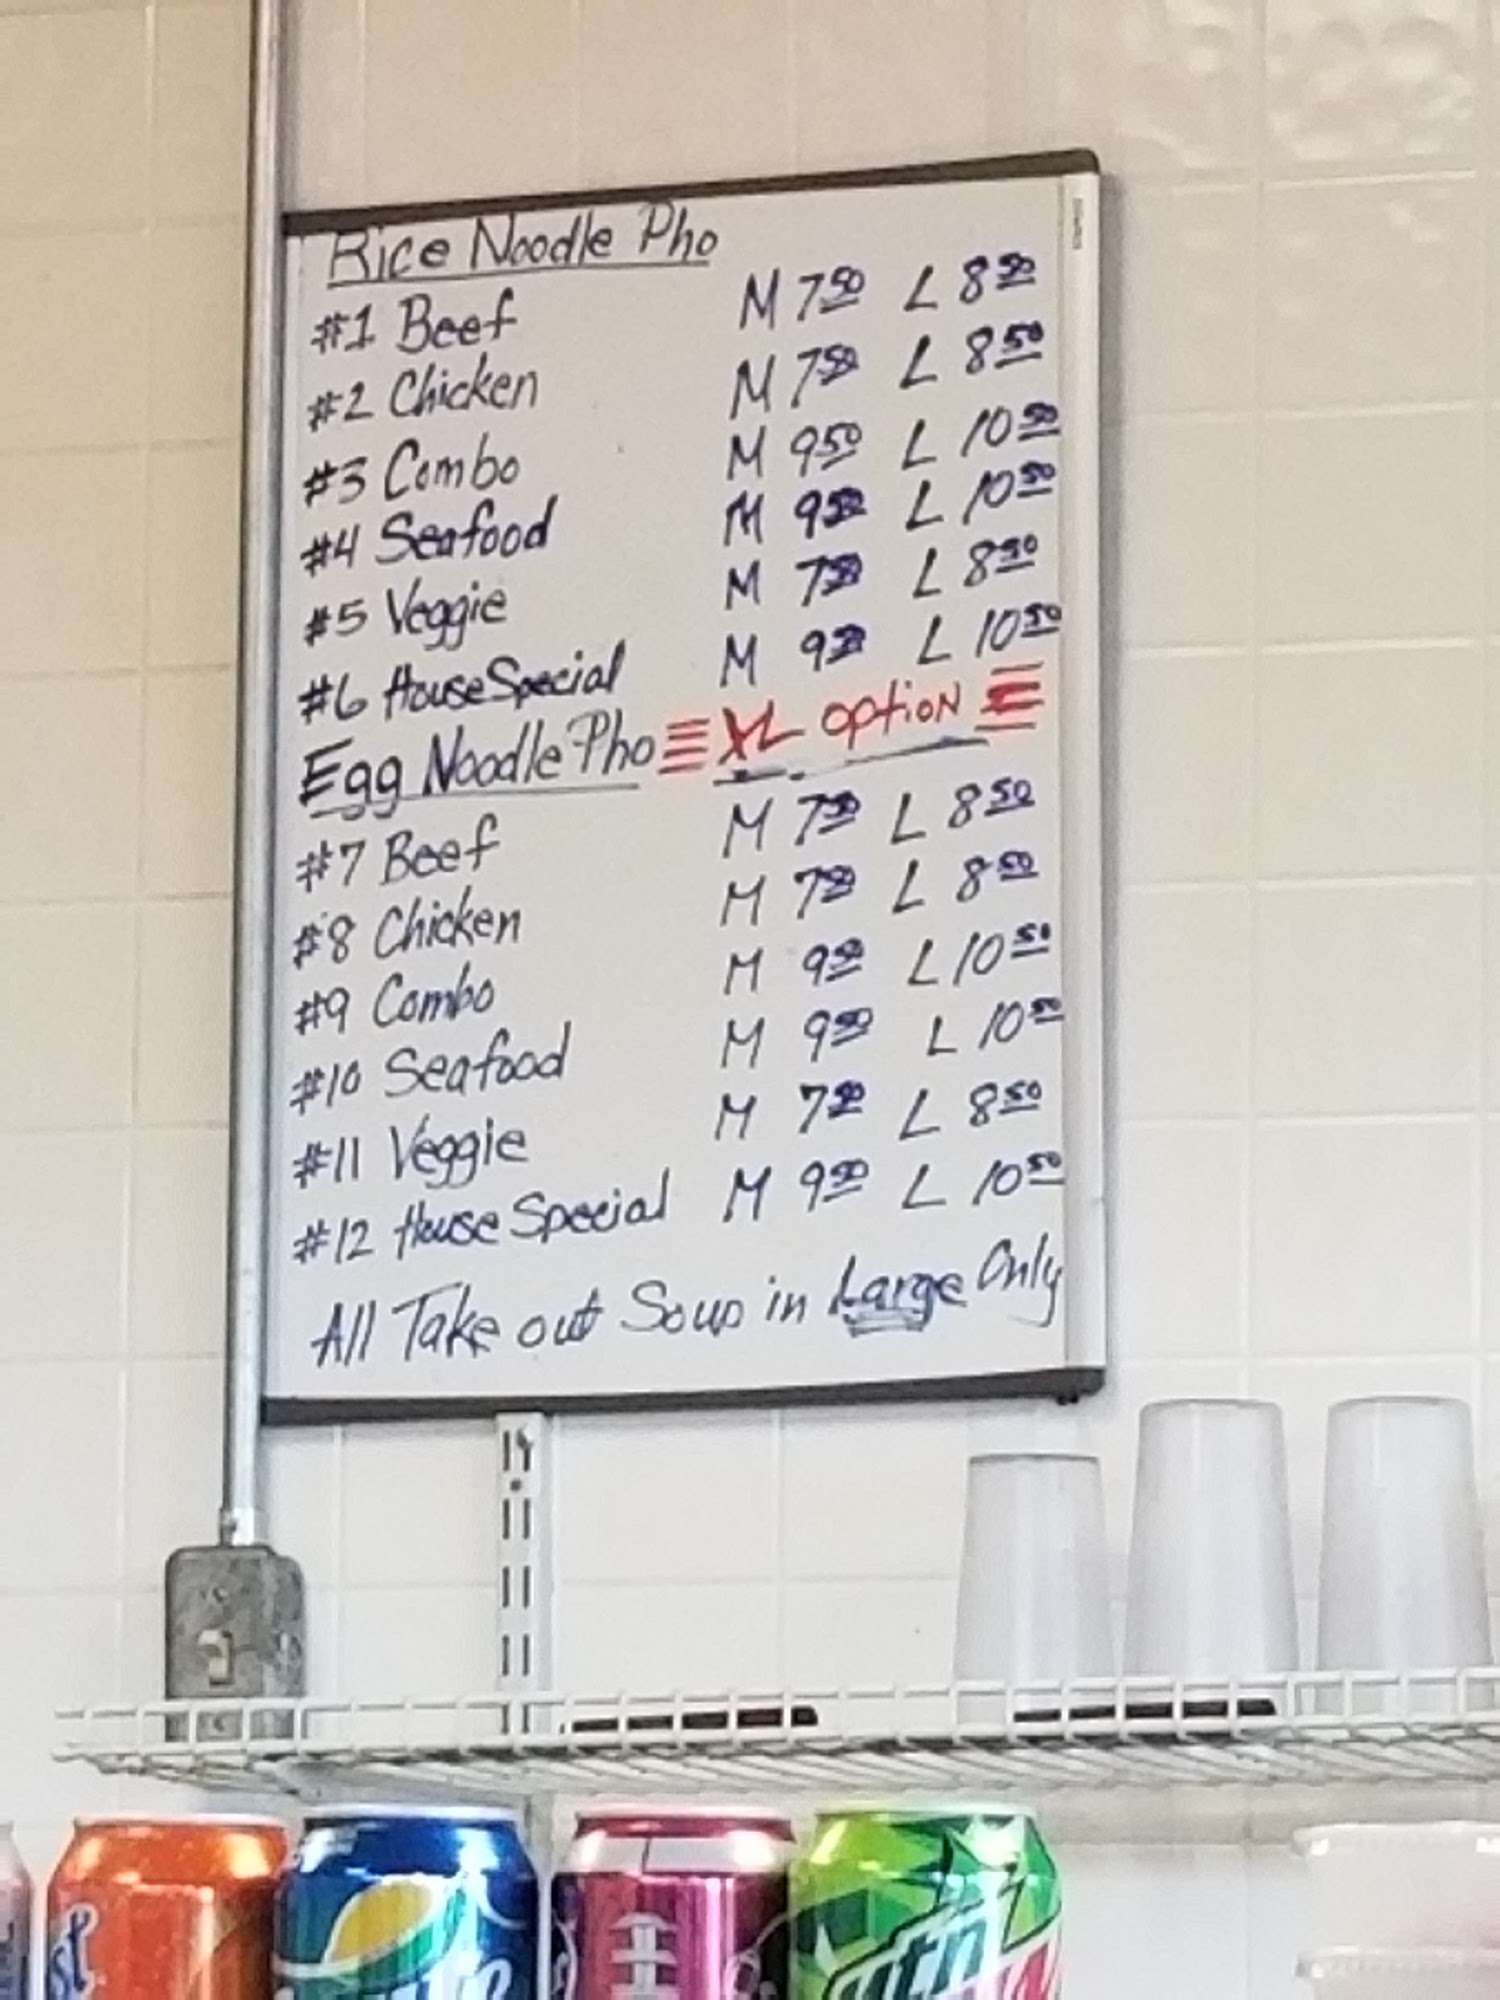 Rice Noodle Pho
#1 Beef M 7.50 L 8.50
#2 Chicken M 7.50 L 8.50
#3 Combo M 9.50 L 10.50
#4 Seafood M 9.50 L 10.50
#5 Veggie M 7.50 L 8.50
#6 House Special M 9.50 L 10.50
Egg Noodle Pho XL option
#7 Beef M 7.50 L 8.50
#8 Chicken M 7.50 L 8.50
#9 Combo M 9.50 L 10.50
#10 Seafood M 9.50 L 10.50
#11 Veggie M 7.50 L 8.50
#12 House Special M 9.50 L 10.50
All Take out Soup in Large Only